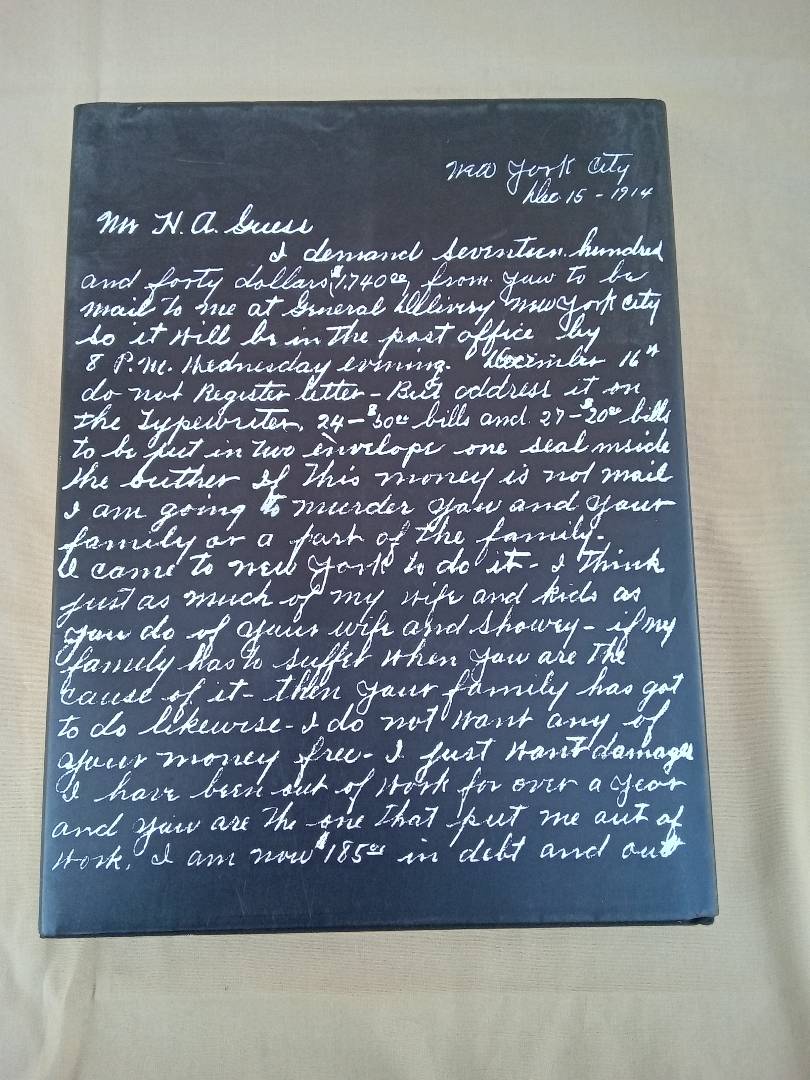 New York City
Dec 15 - 1914
Mr H. A. Guess
I demand seventeen hundred
and forty dollars ($1,740 00) from yaw to be
mail to me at General Dilivery New York City
so it will be in the post office by
8 P.M. Wednesday evining. December 16th
do not Register letter - But address it on
the Typewriter, 24 - $50 00 bills and 27 - $20 00 bills
to be put in two envelope one seal inside
the outher If this money is not mail
I am going to murder yaw and your
family or a part of the family -
I came to New York to do it - I think
just as much of my wife and kids as
you do of your wife and Showey - if my
family has to suffer when yaw are the
cause of it - then your family has got
to do likewise - I do not want any of
your money free - I just want damages
I have been out of work for over a year
and yaw are the one that put me out of
work. I am now $185 00 in debt and out